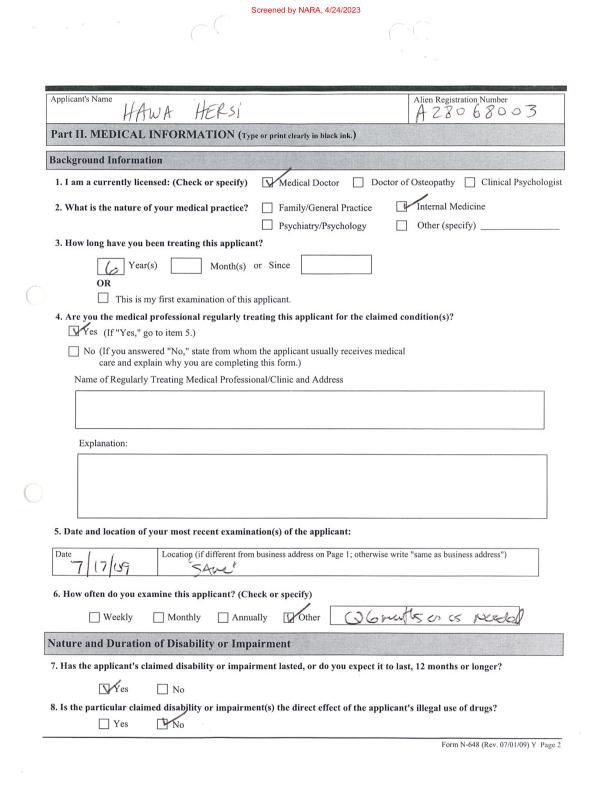 Screened by NARA, 4/24/2023
Applicant's Name
HAWA HERSI
Alien Registration Number
A28068003
Part II. MEDICAL INFORMATION (Type or print clearly in black ink.)
Background Information
1. I am a currently licensed: (Check or specify) Medical Doctor Doctor of Osteopathy Clinical Psychologist
2. What is the nature of your medical practice? Family/General Practice Internal Medicine
Psychiatry/Psychology Other (specify)
3. How long have you been treating this applicant?
6 Year(s) Month(s) or Since
OR
This is my first examination of this applicant.
4. Are you the medical professional regularly treating this applicant for the claimed condition(s)?
Yes (If "Yes," go to item 5.)
No (If you answered "No," state from whom the applicant usually receives medical
care and explain why you are completing this form.)
Name of Regularly Treating Medical Professional/Clinic and Address
Explanation:
5. Date and location of your most recent examination(s) of the applicant:
Date
7/17/09
Location (if different from business address on Page 1; otherwise write "same as business address")
"SAme"
6. How often do you examine this applicant? (Check or specify)
Weekly Monthly Annually Other 6 months or as needed
Nature and Duration of Disability or Impairment
7. Has the applicant's claimed disability or impairment lasted, or do you expect it to last, 12 months or longer?
Yes No
8. Is the particular claimed disability or impairment(s) the direct effect of the applicant's illegal use of drugs?
Yes No
Form N-648 (Rev. 07/01/09) Y Page 2